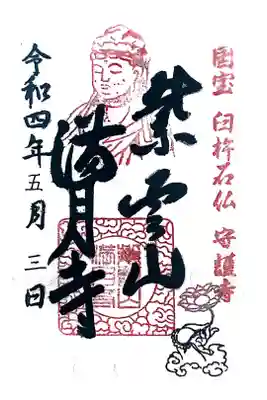 国宝 臼杵石仏 守護寺
紫雲山
満月寺
令和四年五月三日